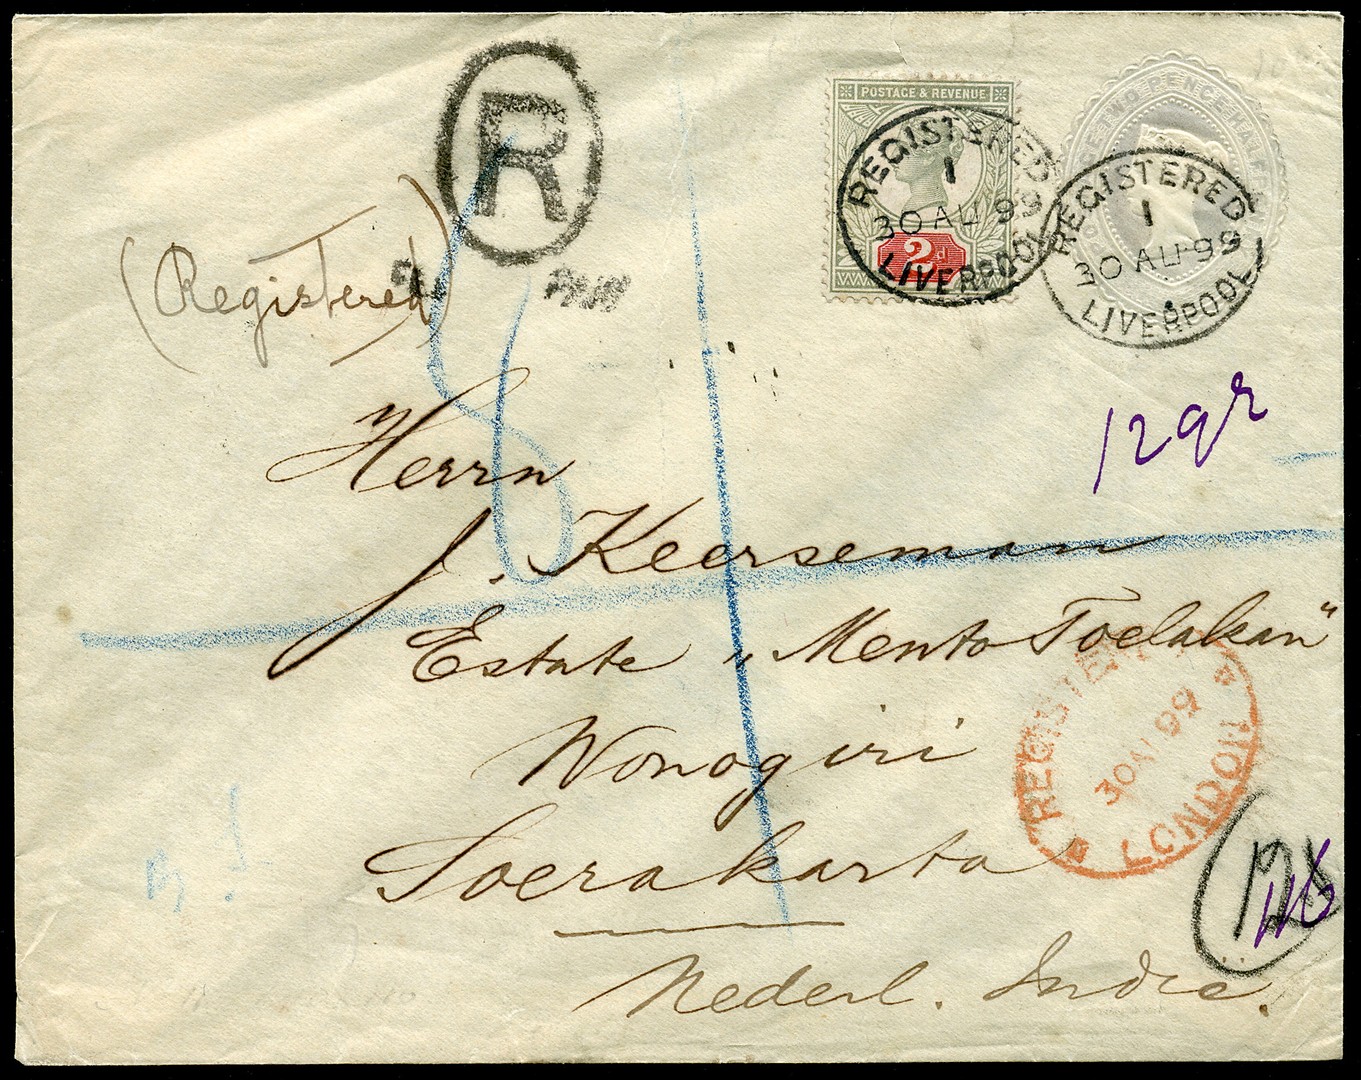 R
POSTAGE & REVENUE
2d
REGISTERED
1
30 AU 99
LIVERPOOL
TWO PENCE HALF
REGISTERED
1
30 AU 99
LIVERPOOL
(Registered)
12gr
Herrn
J. Keerseman
Estate „Mento Toelakan"
Wonogiri
Soerakarta
Nederl. Indië.
REGISTERED
30 AU 99
LONDON
116